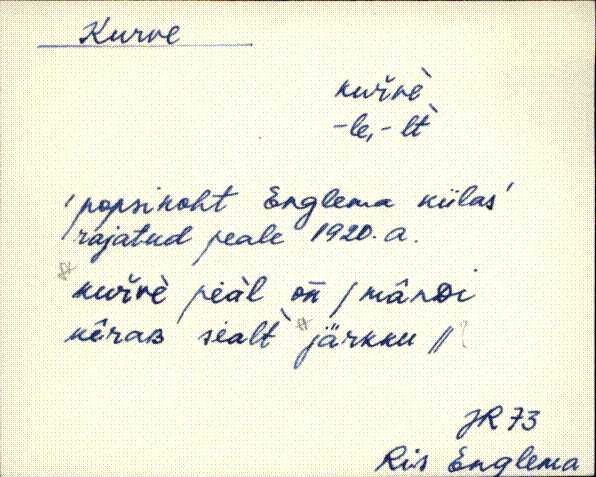 Kurve
kuřvè
-le, -lt̀
'popsikoht Englema külas'
rajatud peale 1920. a.
kuřvè peàl on / mândi
kêraB sealt̀ järkku //
JR 73
Ris Englema